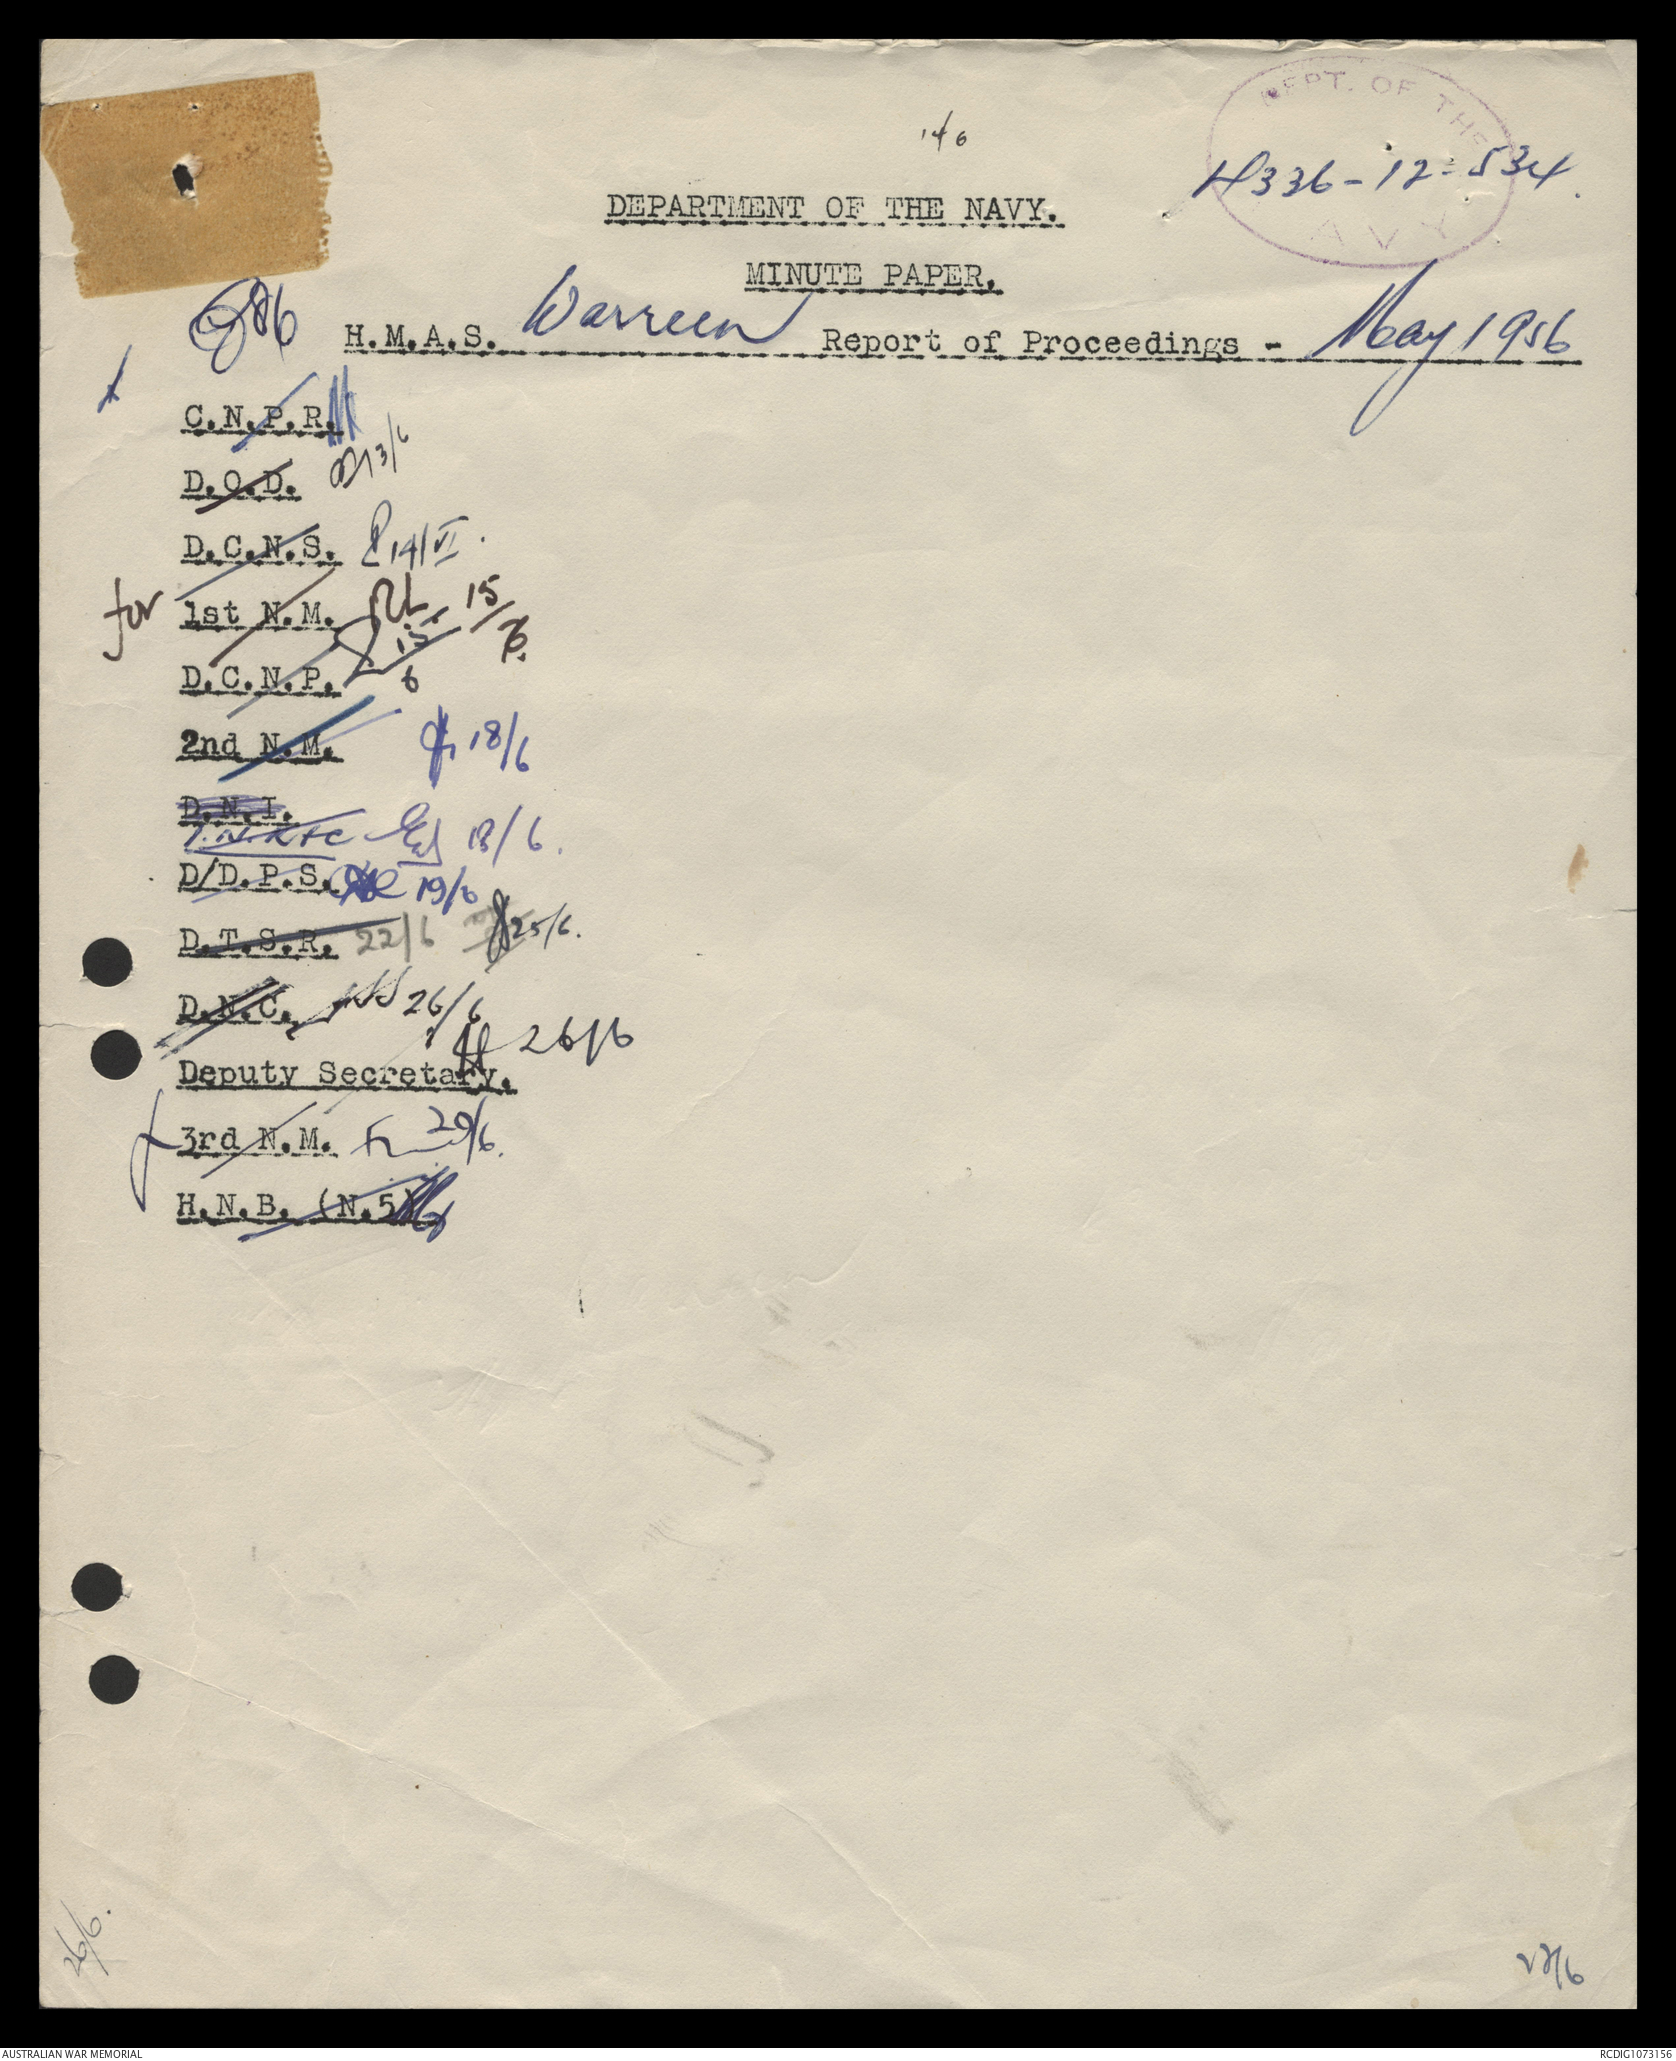 DEPT. OF THE
14/6
4336-12-534.
AVY
DEPARTMENT OF THE NAVY.
MINUTE PAPER.
H.M.A.S. Warreen Report of Proceedings - May 1956
C.N.P.R.
D.O.D. 13/6
D.C.N.S. 14/VI.
for 1st N.M. 15/6.
D.C.N.P. 15/6
2nd N.M. 18/6
D.N.I.
18/6.
D/D.P.S. 19/6
D.T.S.R. 22/6 25/6.
D.N.C. 26/6
26/6
Deputy Secretary.
3rd N.M. 29/6.
H.N.B. (N.5)
26/6.
27/6
AUSTRALIAN WAR MEMORIAL
RCDIG1073156